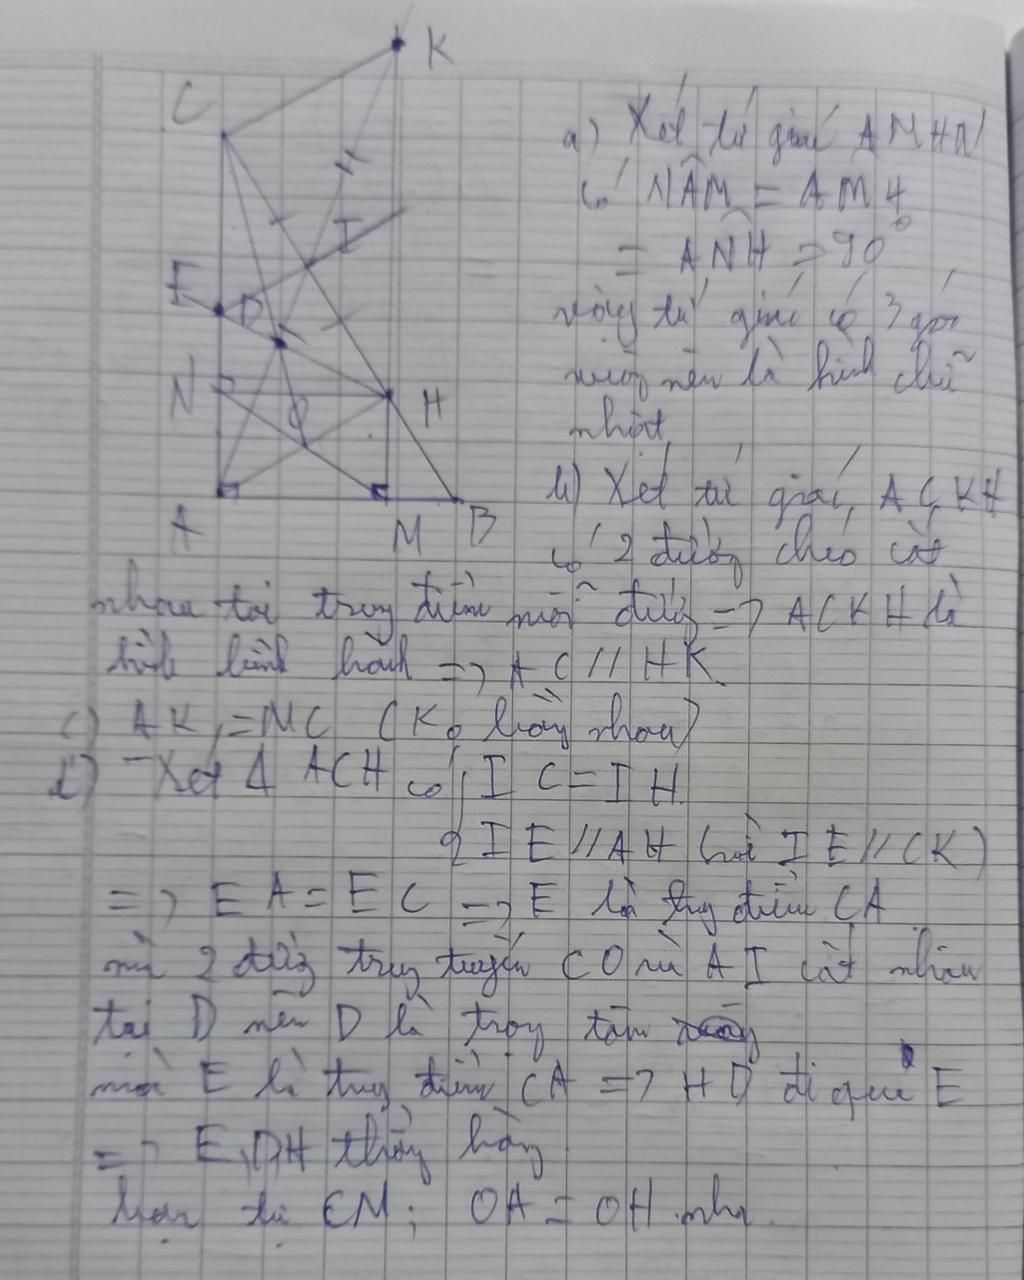 K
C
I
E
D
N
O
H
A
M
B
a) Xét tứ giác AMHN
có NÂM = AMH
= ANH = 90°
vậy tứ giác có 3 góc
vuông nên là hình chữ
nhật
b) Xét tứ giác ACKH
có 2 đường chéo cắt
nhau tại trung điểm mỗi đường => ACKH là
hình bình hành => AC // HK
c) AK = MC (Ko bằng nhau)
- Xét Δ ACH có { IC = IH
IE // AH (vì IE // CK)
=> EA = EC => E là trung điểm CA
mà 2 đường trung tuyến CO và AI cắt nhau
tại D nên D là trọng tâm
mà E là trung điểm CA => HD đi qua E
=> E, D, H thẳng hàng
bạn tự CM; OA = OH nha.